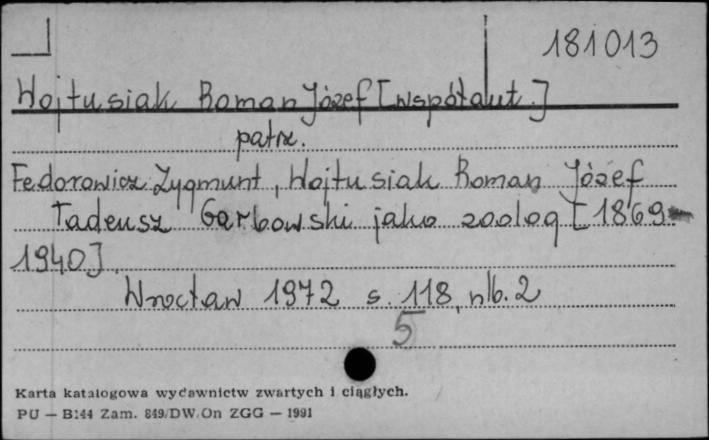 181013
Wojtusiak Roman Józef [współaut.]
patrz.
Fedorowicz Zygmunt, Wojtusiak Roman Józef
Tadeusz Garbowski jako zoolog [1869-
1940].
Wrocław 1972 s. 118, nlb. 2
5
Karta katalogowa wydawnictw zwartych i ciągłych.
PU — B144 Zam. 849/DW/On ZGG — 1991